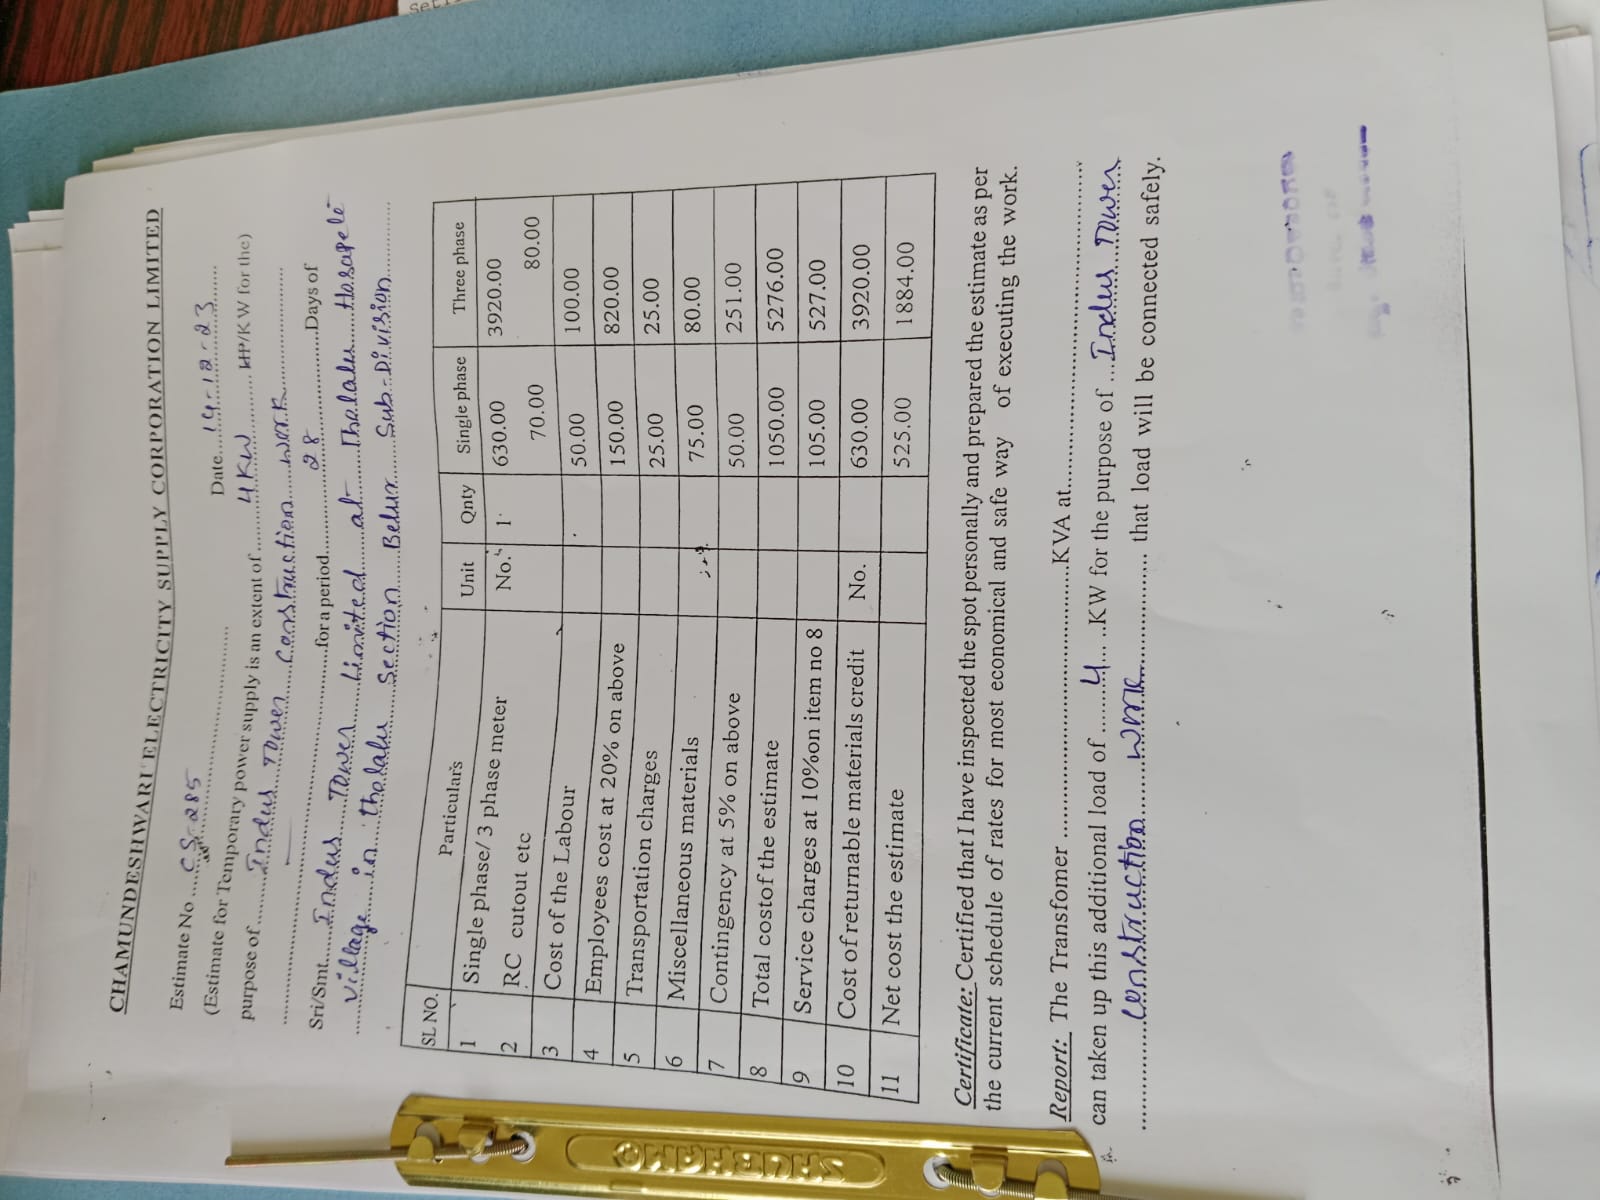 CHAMUNDESHWARI ELECTRICITY SUPPLY CORPORATION LIMITED
Estimate No.... CS-285 Date.... 14-12-23
(Estimate for Temporary power supply is an extent of.... 4KW .... HP/KW for the)
purpose of.... Indus Tower Construction work
for a period.... 28 ....Days of
Sri/Smt.... Indus Tower Limited at Thalalu Hosapete
village in thalalu Section Belur Sub-Division
SL NO. Particulars Unit Qnty Single phase Three phase
1 Single phase/ 3 phase meter No. 1 630.00 3920.00
2 RC cutout etc 70.00 80.00
3 Cost of the Labour 50.00 100.00
4 Employees cost at 20% on above 150.00 820.00
5 Transportation charges 25.00 25.00
6 Miscellaneous materials 75.00 80.00
7 Contingency at 5% on above 50.00 251.00
8 Total costof the estimate 1050.00 5276.00
9 Service charges at 10%on item no 8 105.00 527.00
10 Cost of returnable materials credit No. 630.00 3920.00
11 Net cost the estimate 525.00 1884.00
Certificate: Certified that I have inspected the spot personally and prepared the estimate as per
the current schedule of rates for most economical and safe way of executing the work.
Report: The Transfomer ....KVA at....
can taken up this additional load of .... 4 ....KW for the purpose of ... Indus Tower
Construction work .... that load will be connected safely.
SHUBHAM